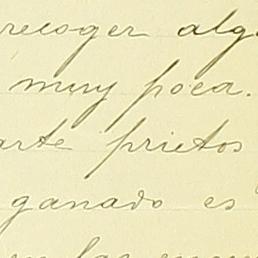 recoger alg
muy poca.
arte prietos
ganado es